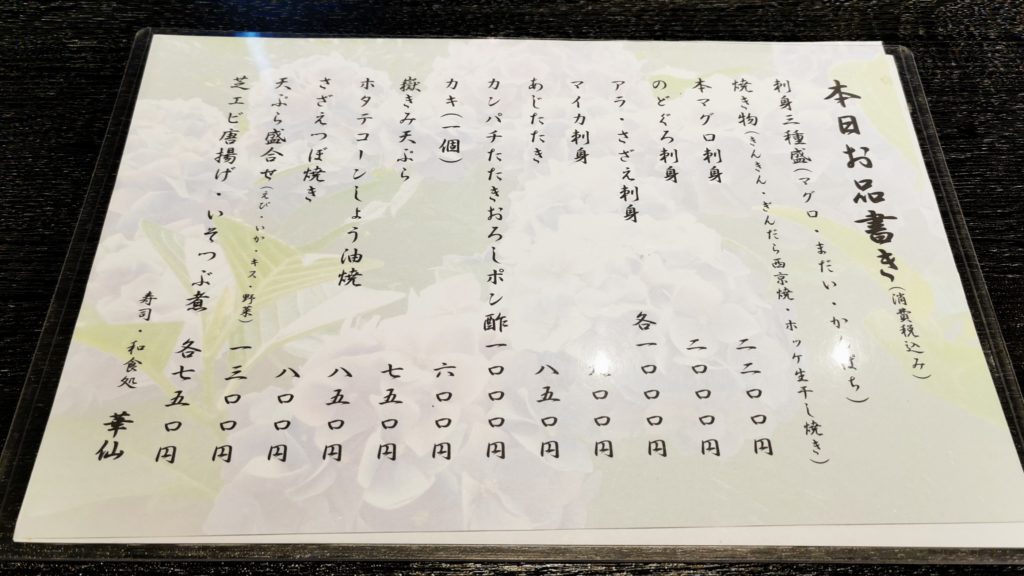 本日お品書き(消費税込み)
刺身三種盛(マグロ・まだい・かんぱち)
焼き物(きんきん・ぎんだら西京焼・ホッケ生干し焼き)
本マグロ刺身 二二〇〇円
のどぐろ刺身 二〇〇〇円
アラ・さざえ刺身 各一〇〇〇円
マイカ刺身 〇〇円
あじたたき 八五〇円
カンパチたたきおろしポン酢 一〇〇〇円
カキ(一個) 六〇〇円
嶽きみ天ぷら 七五〇円
ホタテコーンしょう油焼 八五〇円
さざえつぼ焼き 八〇〇円
天ぷら盛合せ(えび・いか・キス・野菜) 一三〇〇円
芝エビ唐揚げ・いそつぶ煮 各七五〇円
寿司・和食処 華仙